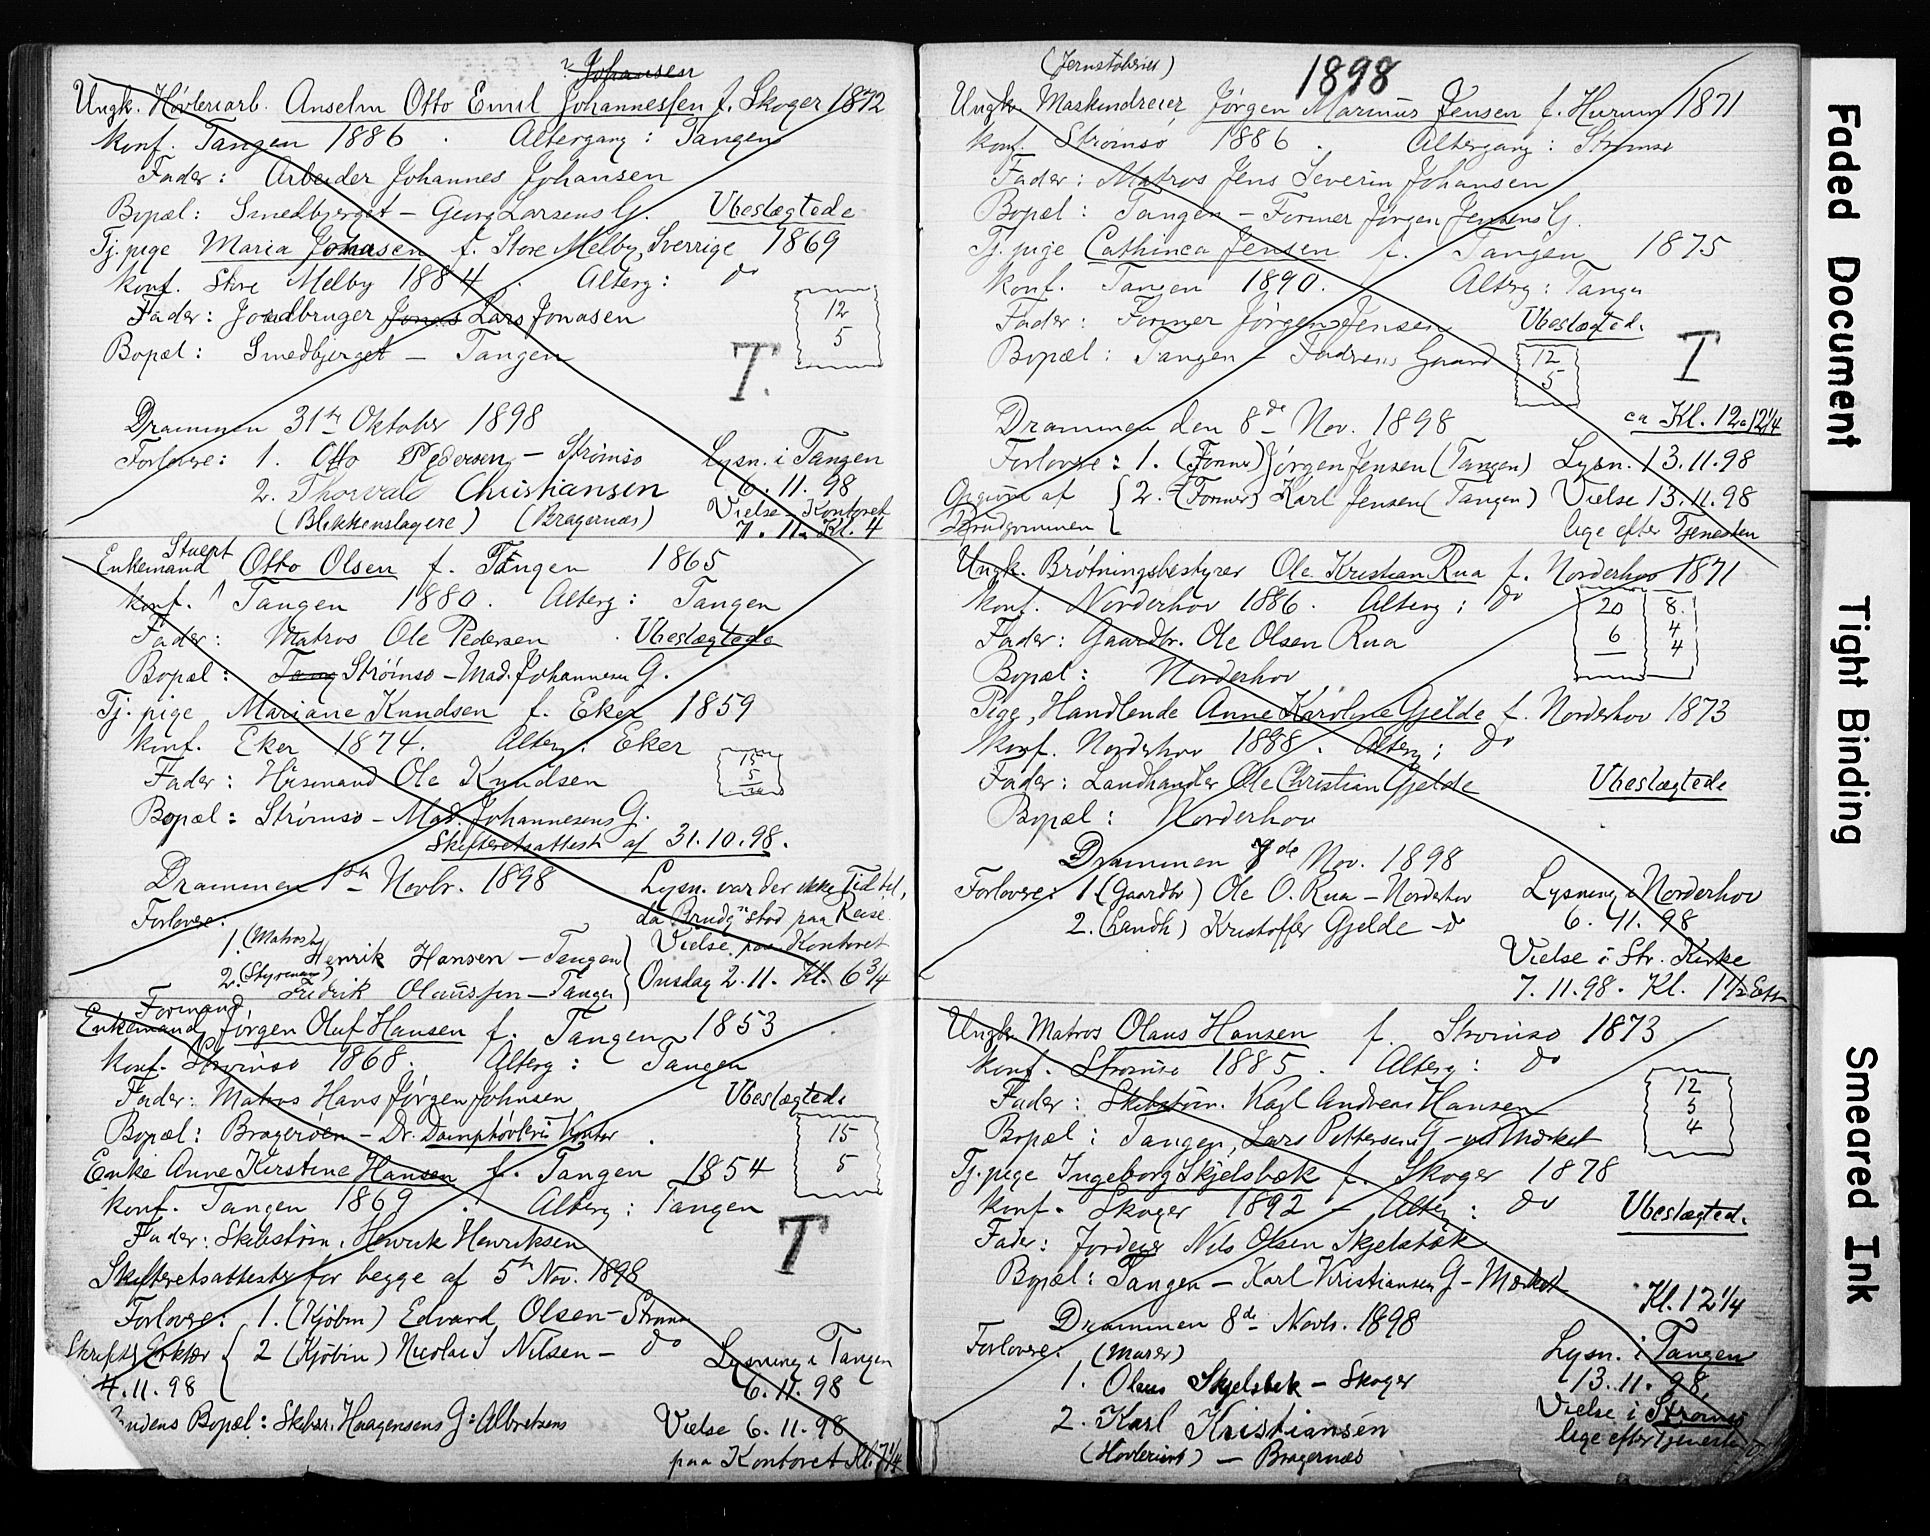 Johansen
Ungk. Høvleriarb. Anselm Otto Emil Johannessen f. Skoger 1872
Konf. Tangen 1886. Altergang: Tangen
Fader: Arbeider Johannes Johansen
Bopæl: Smedbjerget - Georg Larsens G. Ubeslægtede
Tj. pige Maria Jonasen f. Store Melby, Sverrige 1869
Konf. Store Melby 1884. Alterg: do
Fader: Jordbruger Jonas Lars Jonasen
12
5
Bopæl: Smedbjerget - Tangen
T.
Drammen 31te Oktober 1898
Forlovere: 1. Otto Pedersen - Strømsø Lysn. i Tangen
2. Thorvald Christiansen 6.11.98
(Blikkenslagere) (Bragernæs) Vielse - Kontoret
7.11. Kl. 4
Stuert
Enkemand Otto Olsen f. Tangen 1865
Konf. Tangen 1880. Alterg: Tangen
Fader: Matros Ole Pedersen. Ubeslægtede
Bopæl: Tang Strømsø - Mad. Johannesens G.
Tj. pige Mariane Knudsen f. Eker 1859
Konf. Eker 1874. Alterg: Eker
15
5
Fader: Husmand Ole Knudsen
Bopæl: Strømsø - Mad. Johannesens G.
Skifteretsattest af 31.10.98.
Drammen 1ste Novbr. 1898 Lysn. var der ikke Tid til,
Forlovere: da Brudg. stod paa Reise.
1. (Matros) Henrik Hansen - Tangen Vielse paa Kontoret
2. (Styrmand) Fredrik Olaussen - Tangen Onsdag 2.11. Kl. 6 3/4
Formand
Enkemand Jørgen Oluf Hansen f. Tangen 1853
Konf. Strømsø 1868. Alterg: Tangen
Fader: Matros Hans Jørgen Johnsen Ubeslægtede
Bopæl: Bragerøen - Dr. Damphøvleris Kontor.
15
5
Enke Anne Kirstine Hansen f. Tangen 1854
Konf. Tangen 1869. Alterg: Tangen
Fader: Skibstøm. Henrik Henriksen
T
Skifteretsattester for begge af 5te Nov. 1898
Forlovere: 1. (Kjøbm) Edvard Olsen - Strømsø
2 (Kjøbm) Nicolai J Nilsen - do Lysning i Tangen
4.11.98 6.11.98
Bopæl: Skibsr. Haagensens G: Albretsens Vielse 6.11.98
paa Kontoret Kl. 7 1/4
1898
Ungk. Maskindreier Jørgen Marinus Jensen f. Hurum 1871
Konf. Strømsø 1886. Altergang: Strømsø
Fader: Matros Jens Severin Johansen
Bopæl: Tangen - Former Jørgen Jensens G.
Tj. pige Cathinca Jensen f. Tangen 1875
Konf. Tangen 1890. Alterg: Tangen
Fader: Former Jørgen Jensen Ubeslægtede
Bopæl: Tangen - Faderens Gaard
12
5
T
Drammen den 8de Nov. 1898 ca Kl. 12 a 12 1/4
Forlovere: 1. (Former) Jørgen Jensen (Tangen) Lysn. 13.11.98
Opgivet af 2. (Former) Karl Jensen (Tangen) Vielse 13.11.98
Brudgommen lige efter Tjenesten
Ungk. Brøtningsbestyrer Ole Kristian Rua f. Norderhov 1871
Konf. Norderhov 1886. Alterg: do
20 8
6 4
4
Fader: Gaardbr. Ole Olsen Rua
Bopæl: Norderhov
Pige, Handlende Anne Karoline Gjelde f. Norderhov 1873
Konf. Norderhov 1888. Alterg: do
Fader: Landhandler Ole Christian Gjelde Ubeslægtede
Bopæl: Norderhov
Drammen 7de Nov. 1898
Forlovere: 1 (Gaardbr) Ole O. Rua - Norderhov Lysning i Norderhov
2. (Landh) Kristoffer Gjelde - do 6.11.98
Vielse i Str. Kirke
7.11.98. Kl. 1 1/2 Eftm
Ungk. Matros Olaus Hansen f. Strømsø 1873
Konf. Strømsø 1885. Alterg: do
Fader: Skibstøm. Karl Andreas Hansen
12
5
4
Bopæl: Tangen, Lars Pettersens G - ved Mærket
Tj. pige Ingeborg Skjelsbæk f. Skoger 1878
Konf. Skoger 1892 - Alterg: do Ubeslægtede
Fader: Jordeier Nils Olsen Skjelsbæk
Bopæl: Tangen - Karl Kristiansens G - Mærket
Kl. 12 1/4
Drammen 8de Novb. 1898
Forlovere: Lysn. i Tangen
1. Olaus Skjelsbæk - Skoger 13.11.98
2. Karl Kristiansen Vielse i Strømsø
(Høvleriarb) - Bragernæs lige efter Tjenesten
Faded Document
Tight Binding
Smeared Ink